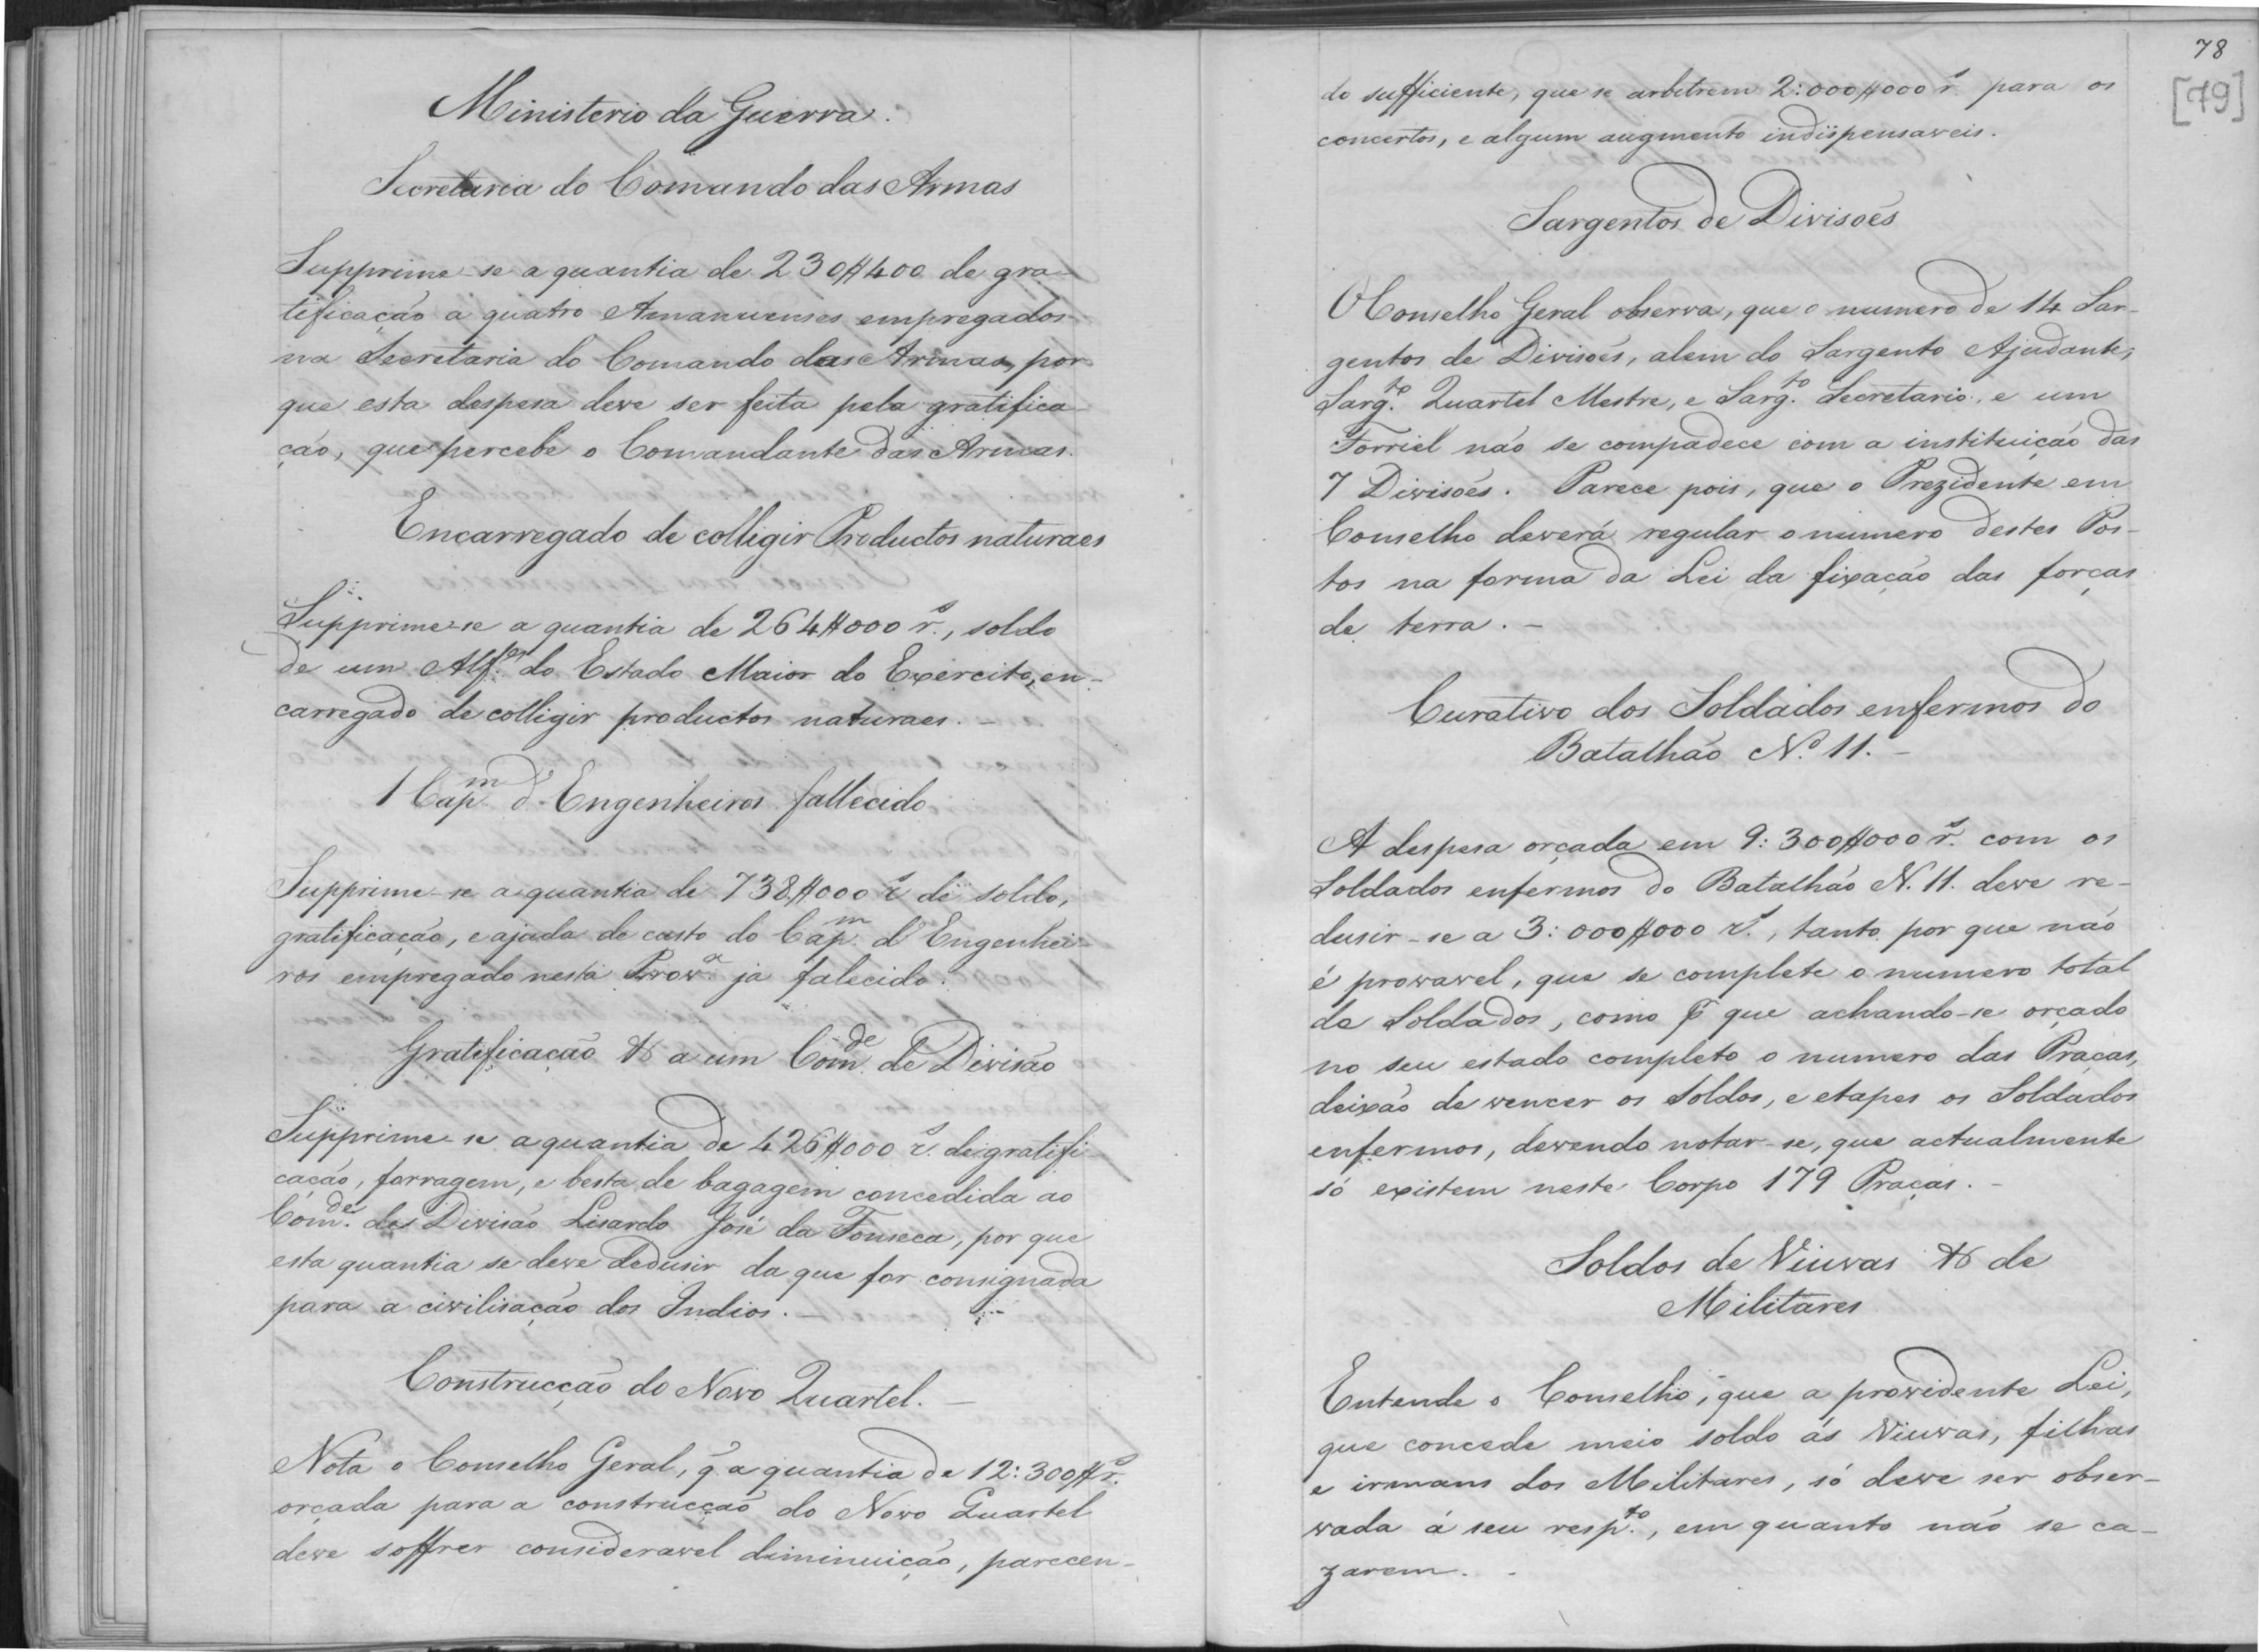 Ministerio da Guerra.
Secretaria do Comando das Armas
Supprime-se a quantia de 230$400 de gra-
tificação a quatro Amanuenses empregados
na Secretaria do Comando das Armas, por
que esta despesa deve ser feita pela gratifica
ção, que percebe o Comandante das Armas.
Encarregado de colligir Productos naturaes
Supprime-se a quantia de 264$000 rs., soldo
de um Alfes. do Estado Maior do Exercito, en-
carregado de colligir productos naturaes. -
1 Capm. d'Engenheiros fallecido
Supprime-se a quantia de 738$000 rs de soldo,
gratificação, e ajuda de custo do Capm. d'Engenhei-
ros empregado nesta Prova. ja falecido.
Gratificação & a um Comde. de Divisão
Supprime-se a quantia de 426$000 rs. de gratifi-
cação, forragem, e besta de bagagem concedida ao
Comde. de Divisão Lisardo José da Fonseca, por que
esta quantia se deve dedusir da que for consignada
para a civilisação dos Indios. -
Construcção do Novo Quartel. -
Nota o Conselho Geral, q̃ a quantia de 12:300$rs.
orçada para a construcção do Novo Quartel
deve soffrer consideravel diminuição, parecen-
78
[79]
do sufficiente, que se arbitrem 2:000$000 rs. para os
concertos, e algum augmento indispensaveis.
Sargentos de Divisões
O Conselho Geral observa, que o numero de 14 Sar-
gentos de Divisões, alem do Sargento Ajudante,
Sargto. Quartel Mestre, e Sargto. Secretario, e um
Forriel não se compadece com a instituição das
7 Divisões. Parece pois, que o Prezidente em
Conselho deverá regular o numero destes Pos-
tos na forma da Lei da fixação das forças
de terra. -
Curativo dos Soldados enfermos do
Batalhão No. 11. -
A despesa orçada em 9:300$000 rs. com os
Soldados enfermos do Batalhão N. 11. deve re-
dusir-se a 3:000$000 rs., tanto por que não
é provavel, que se complete o numero total
de Soldados, como p̃ que achando-se orçado
no seu estado completo o numero das Praças,
deixão de vencer os soldos, e etapes os Soldados
enfermos, devendo notar-se, que actualmente
só existem neste Corpo 179 Praças. -
Soldos de Viuvas & de
Militares
Entende o Conselho, que a providente Lei,
que concede meio soldo ás Viuvas, filhas
e irmans dos Militares, só deve ser obser-
vada á seu respto., em quanto não se ca-
zarem. -